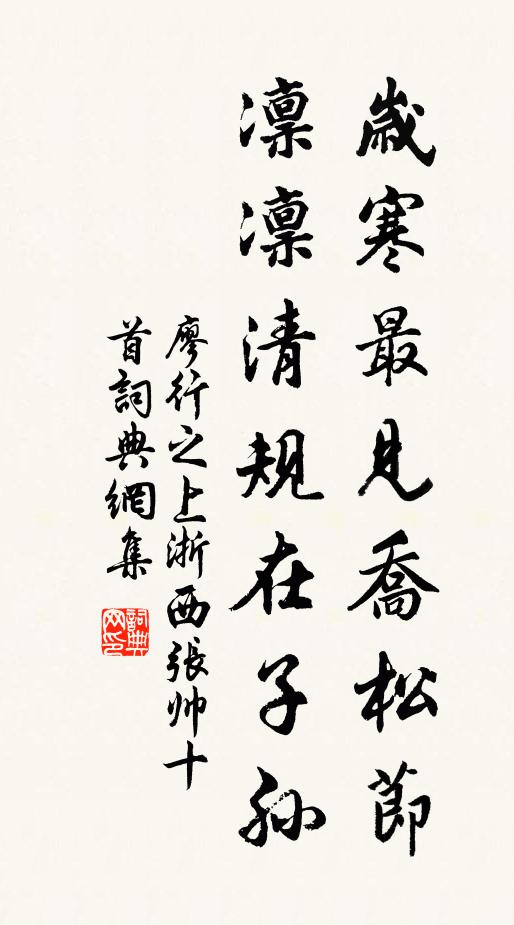 歲寒最見喬松節
凛凛清規在子孫
廖行之上浙西張帅十
首詞典網集
詞典网印